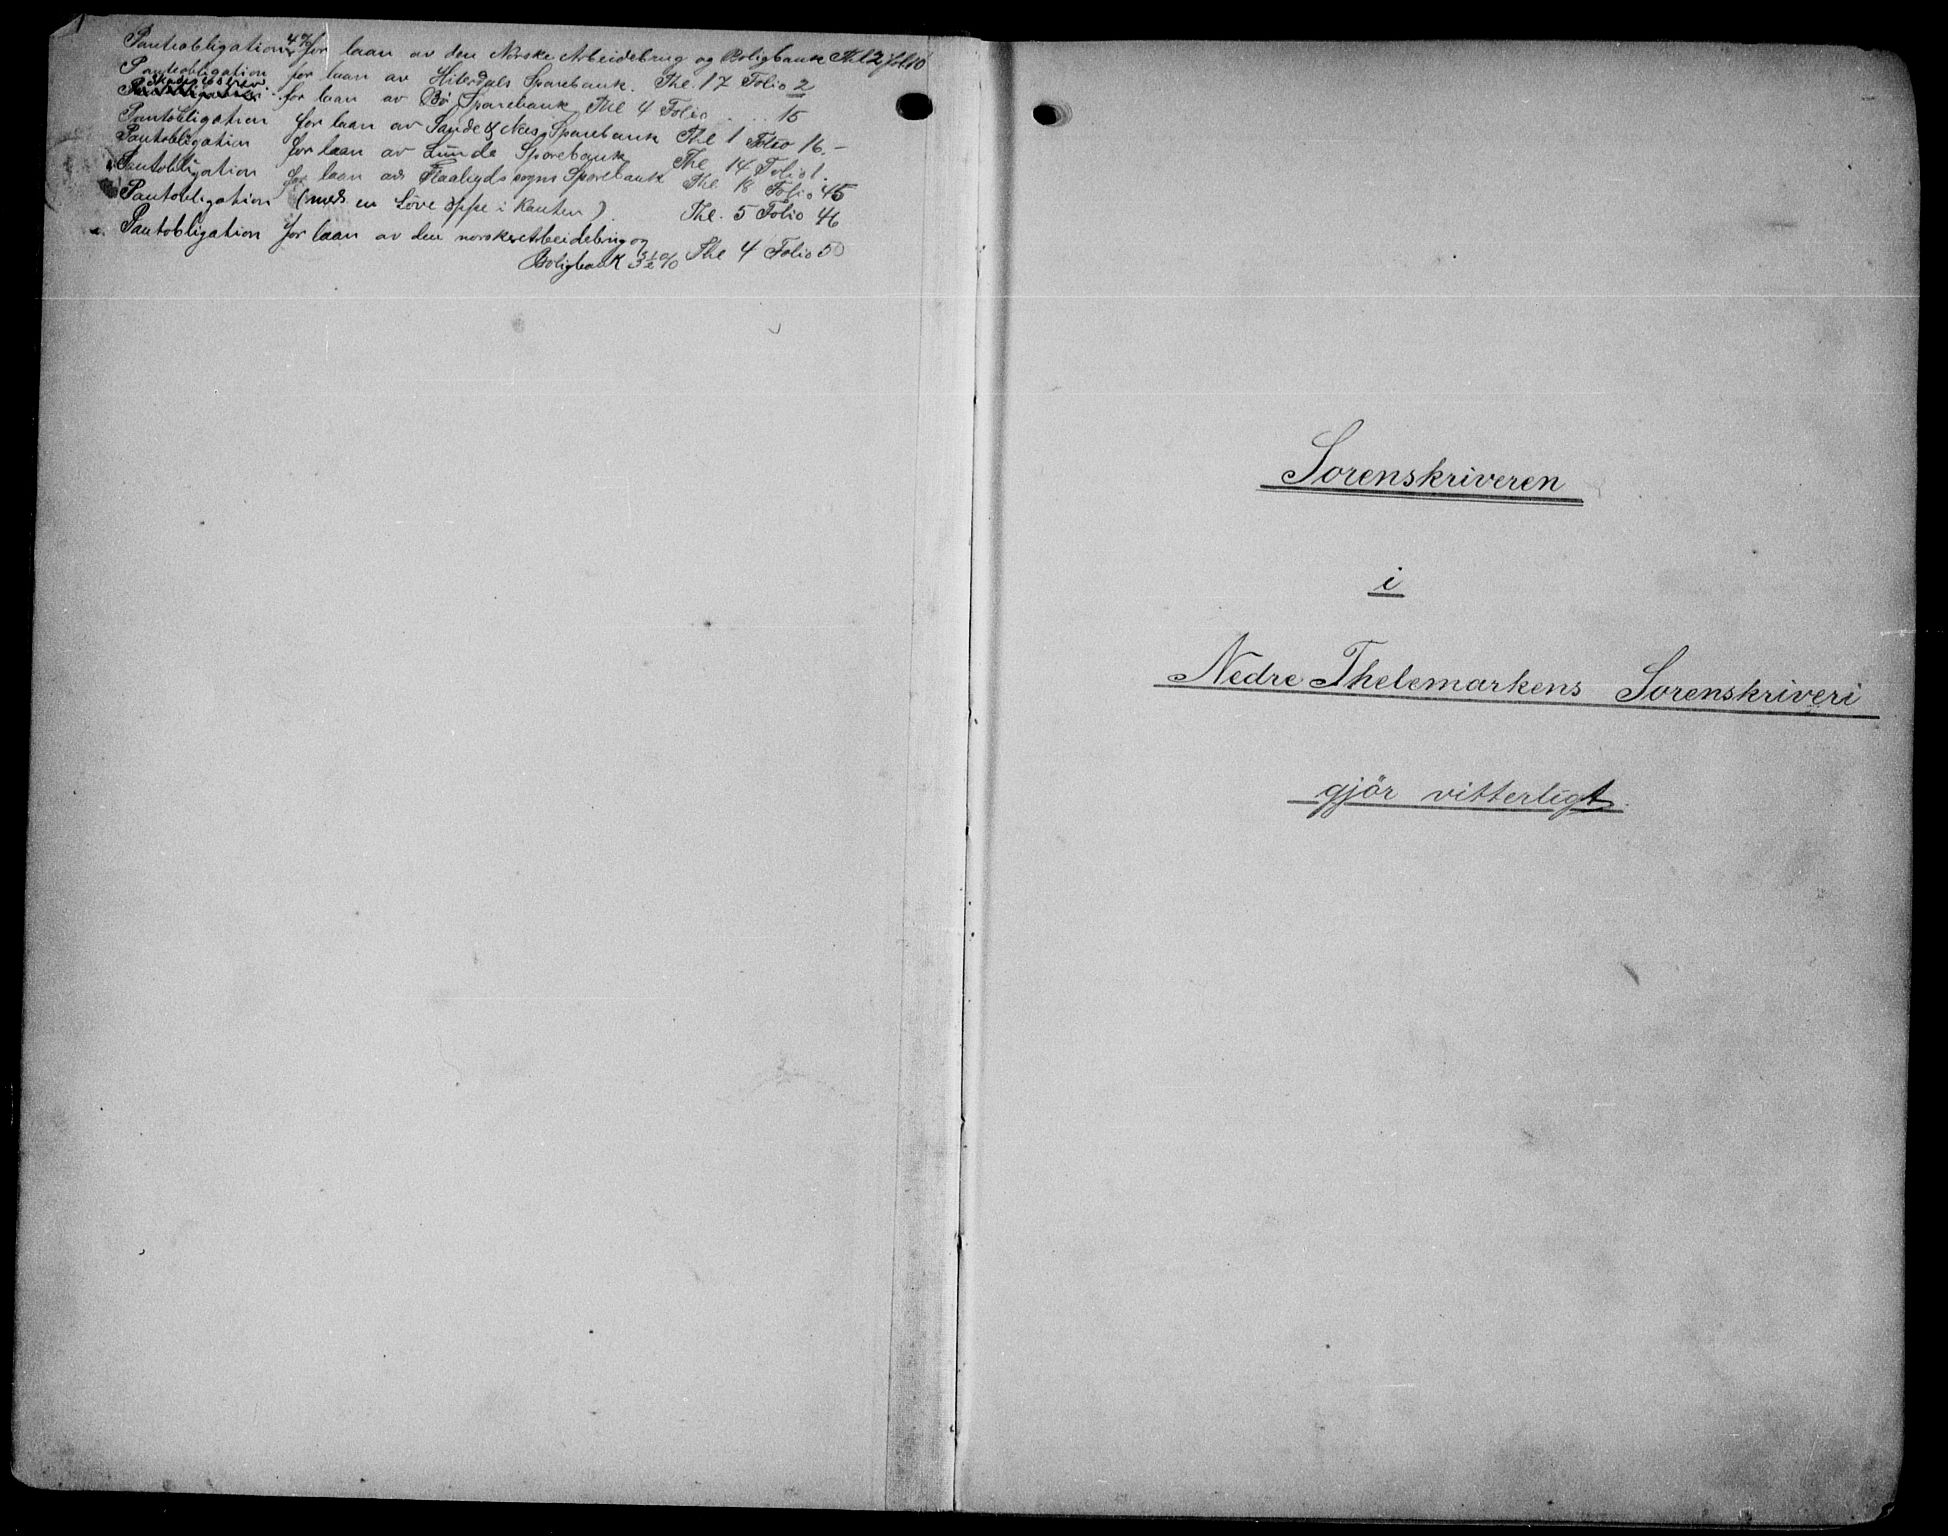 Panteobligation 4% for laan av den Norske Arbeidebrug og Boligbank Thl 2 fol 10
Panteobligation for laan av Hiterdals Sparebank. Thl. 17 Folio 2
Skadesløsbrev for laan av Bø Sparebank Thl 4 Folio . . . 15
Pantobligation for laan av Sande & Nes Sparebank Thl 1 Folio 16.-
Pantobligation for laan av Lunde Sparebank Thl 14 Folio 1.
Pantobligation for laan av Flaabygds sogns Sparebank Thl 18 Folio 45
Pantobligation (med en Löve oppe i Kanten) Thl. 5 Folio 46
Pantobligation for laan av den norske Arbeidebrug og
Boligbank 3½% Thl 4 Folio 50
Sorenskriveren
i
Nedre Thelemarkens Sorenskriveri
gjör vitterligt.